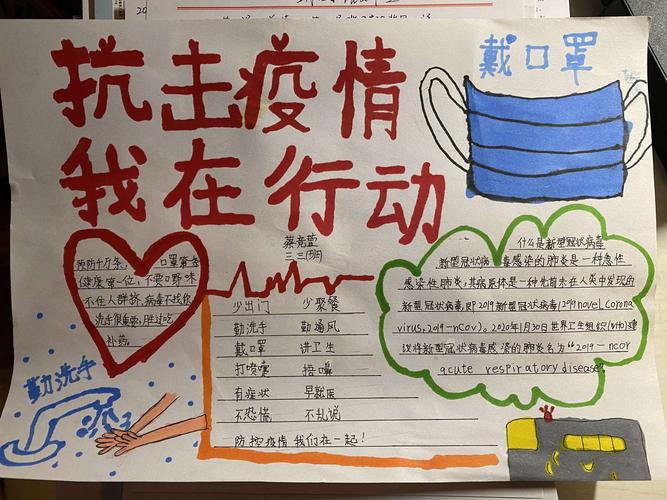 抗击疫情
我在行动
戴口罩
蔡竞萱
三三(班)
预防千万条, 口罩第一条
健康第一位, 不要口野味
不住人群挤, 病毒不找你
洗手很重要, 胜过吃
补药。
勤洗手
少出门 少聚餐
勤洗手 勤通风
戴口罩 讲卫生
打喷嚏 捂嘴
有症状 早就医
不恐慌 不乱说
防控疫情 我们在一起!
什么是新型冠状病毒
新型冠状病毒感染的肺炎是一种急性
感染性肺炎,其病原体是一种先前未在人类中发现的
新型冠状病毒,即2019新型冠状病毒(2019 novel corona
virus, 2019-nCov)。2020年1月30日世界卫生组织(WHO)建
议将新型冠状病毒感染的肺炎名为"2019-ncor
acute respiratory disease